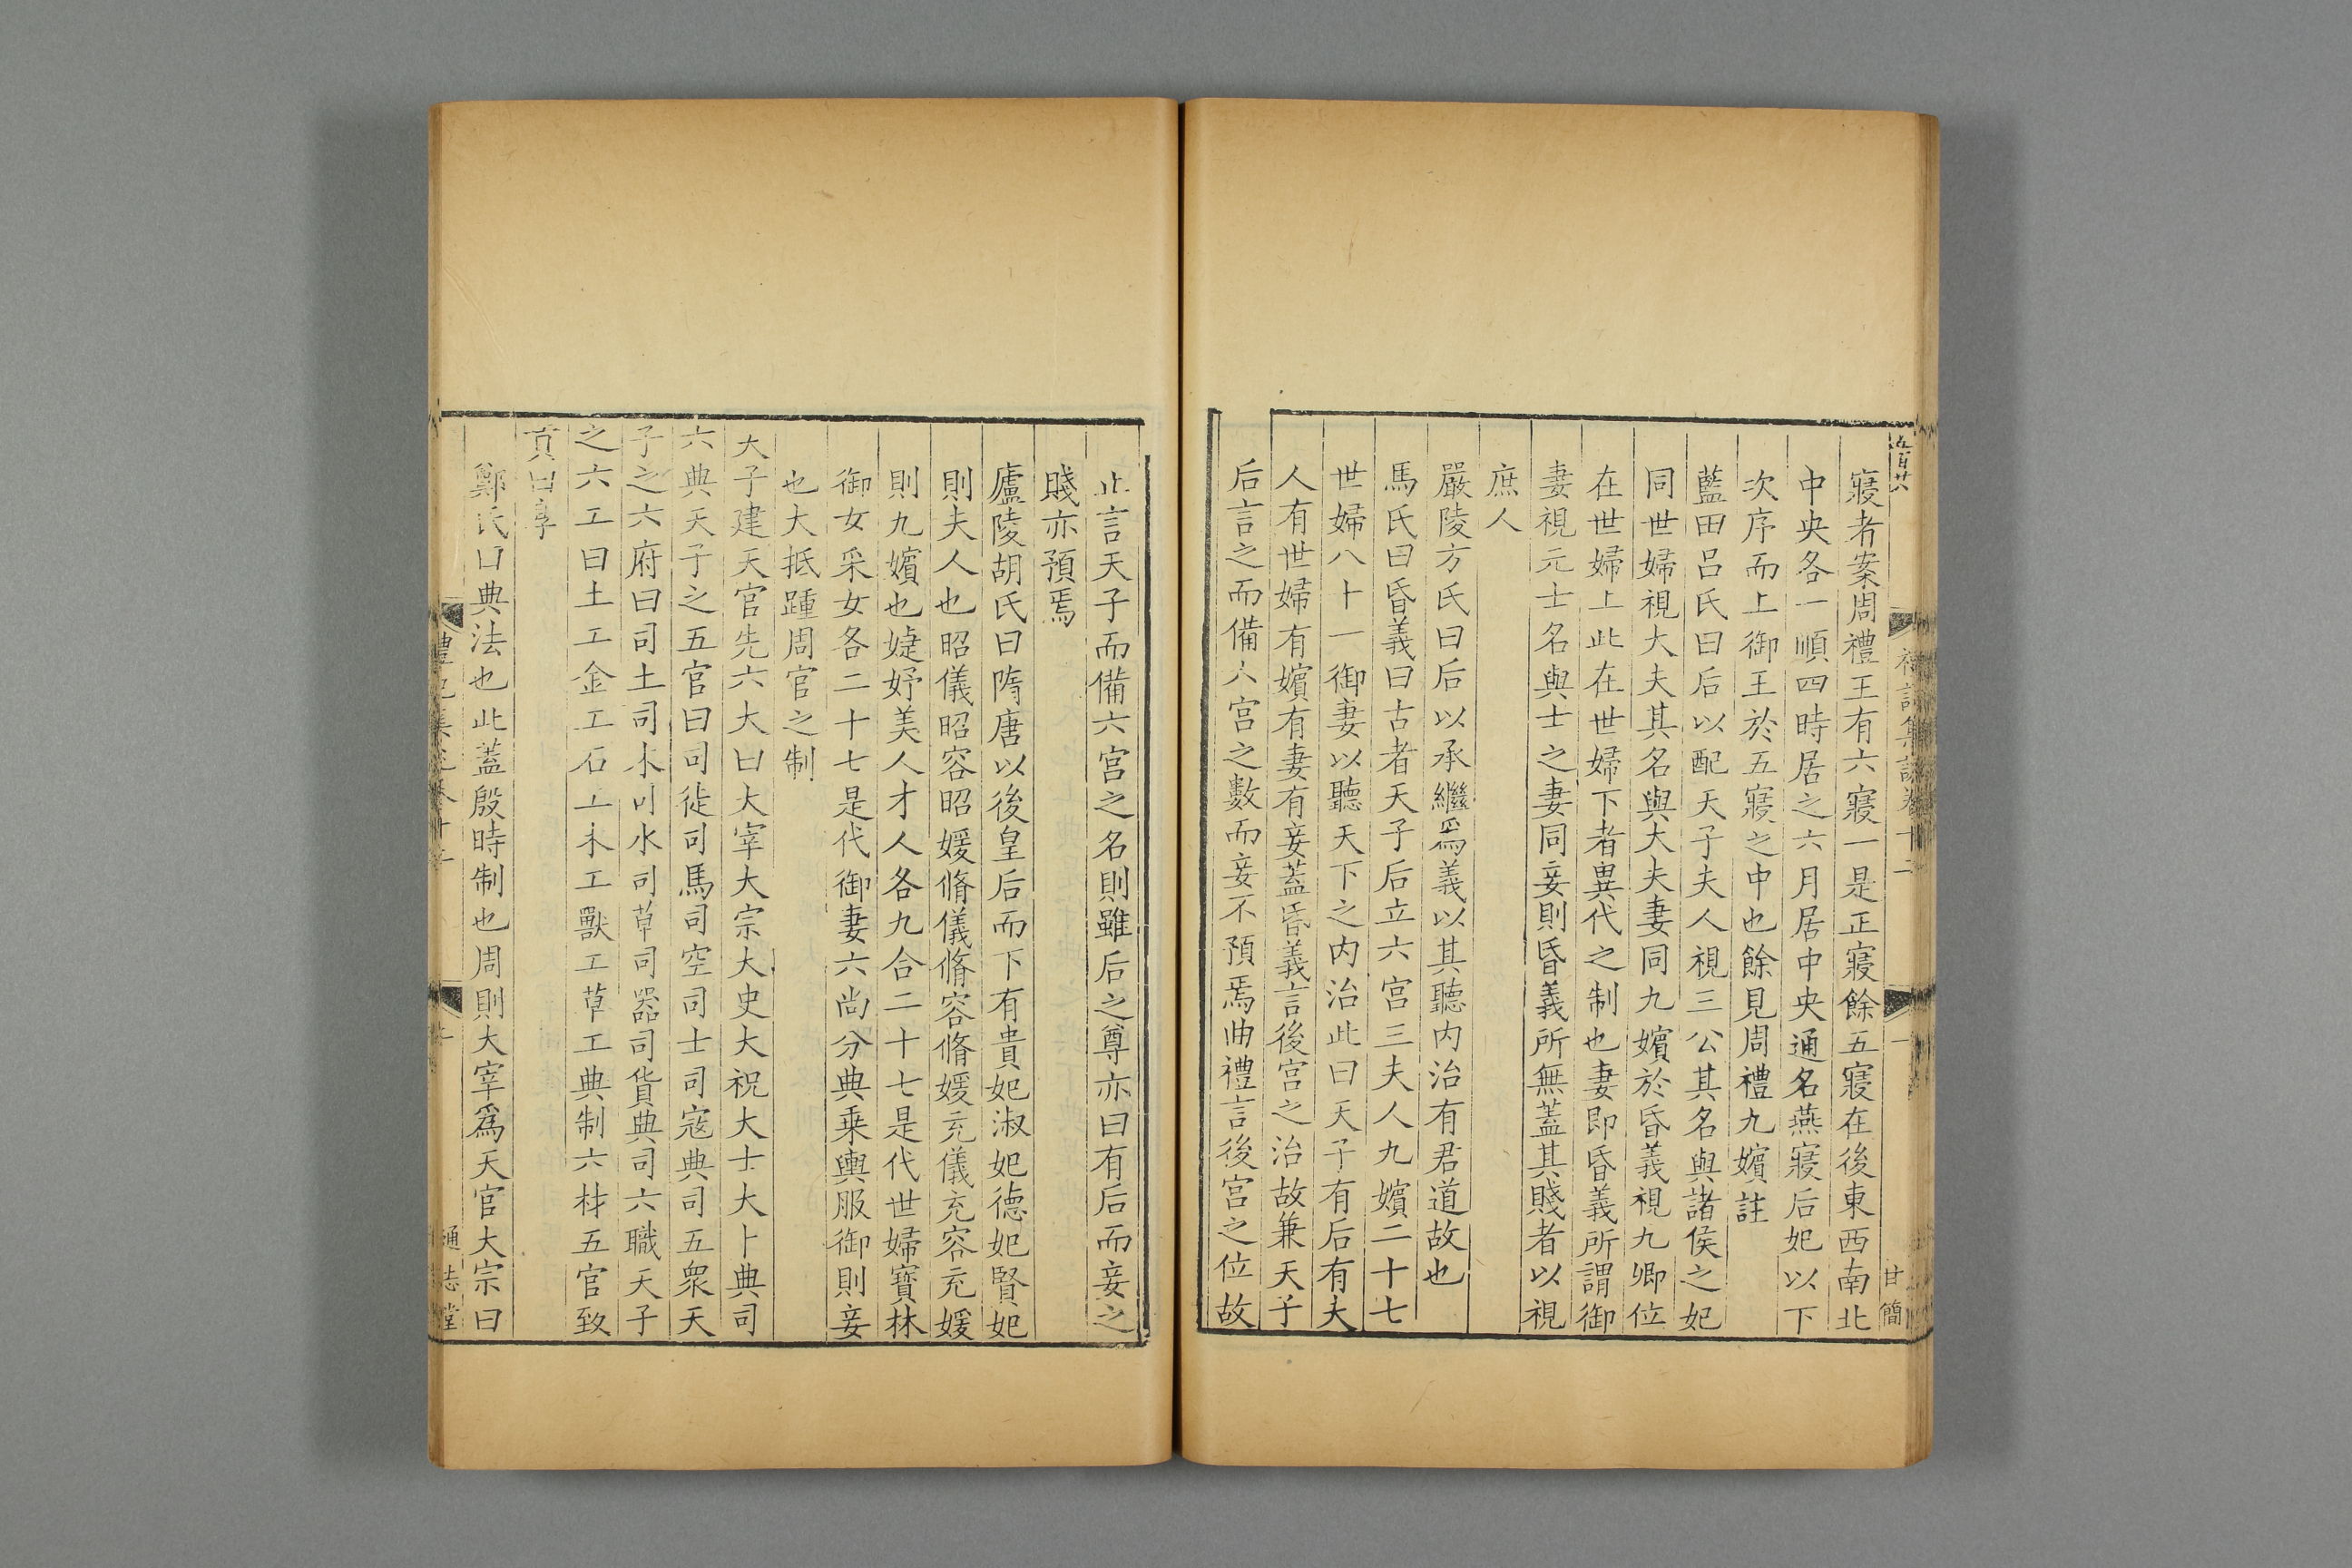 寢者案周禮王有六寢一是正寢餘五寢在後東西南北
中央各一順四時居之六月居中央通名燕寢后妃以下
次序而上御王於五寢之中也餘見周禮九嬪註
藍田呂氏曰后以配天子夫人視三公其名與諸侯之妃
同世婦視大夫其名與大夫妻同九嬪於昏義視九卿位
在世婦上此在世婦下者異代之制也妻即昏義所謂御
妻視元士名與士之妻同妾則昏義所無蓋其賤者以視
庶人
嚴陵方氏曰后以承繼爲義以其聽内治有君道故也
馬氏曰昏義曰古者天子后立六宫三夫人九嬪二十七
世婦八十一御妻以聽天下之内治此曰天子有后有夫
人有世婦有嬪有妻有妾蓋昏義言後宫之治故兼天子
后言之而備六宫之數而妾不預焉曲禮言後宫之位故
甘簡
止言天子而備六宫之名則雖后之尊亦曰有后而妾之
賤亦預焉
廬陵胡氏曰隋唐以後皇后而下有貴妃淑妃德妃賢妃
則夫人也昭儀昭容昭媛脩儀脩容脩媛充儀充容充媛
則九嬪也婕妤美人才人各九合二十七是代世婦寳林
御女采女各二十七是代御妻六尚分典乗輿服御則妾
也大抵踵周官之制
天子建天官先六大曰大宰大宗大史大祝大士大卜典司
六典天子之五官曰司徒司馬司空司士司寇典司五衆天
子之六府曰司土司木司水司草司器司貨典司六職天子
之六工曰土工金工石工木工獸工草工典制六材五官致
貢曰享
鄭氏曰典法也此蓋殷時制也周則大宰爲天官大宗曰
禮記集說卷十二
通志堂